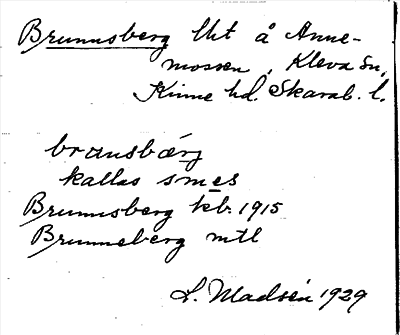 Brunnsberg lht å Anne-
mossen, Kleva sn,
Kinne hd. Skarab. l.
brunsbærj
kallas smes
Brunnsberg kb. 1915
Brunneberg mtl
L. Madsén 1929